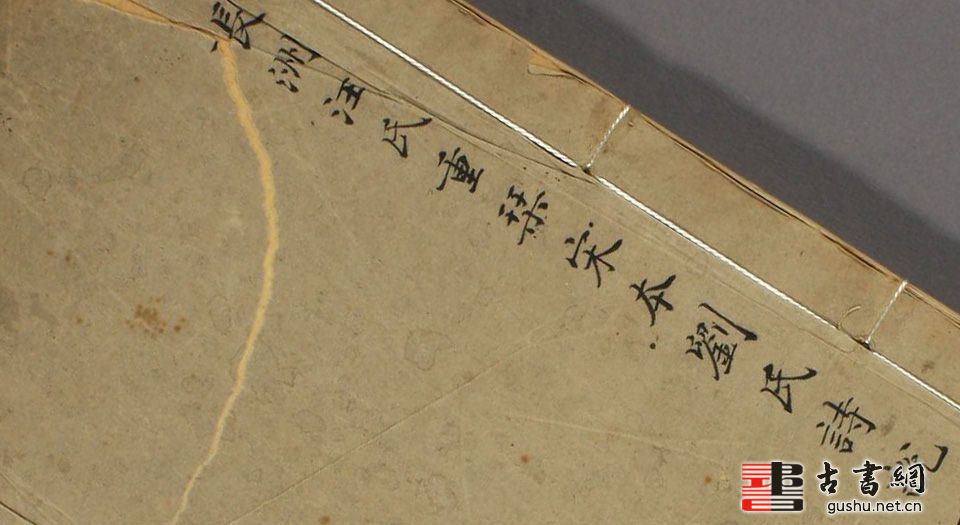 長洲汪氏重栞宋本劉氏詩說
古書網
gushu.net.cn